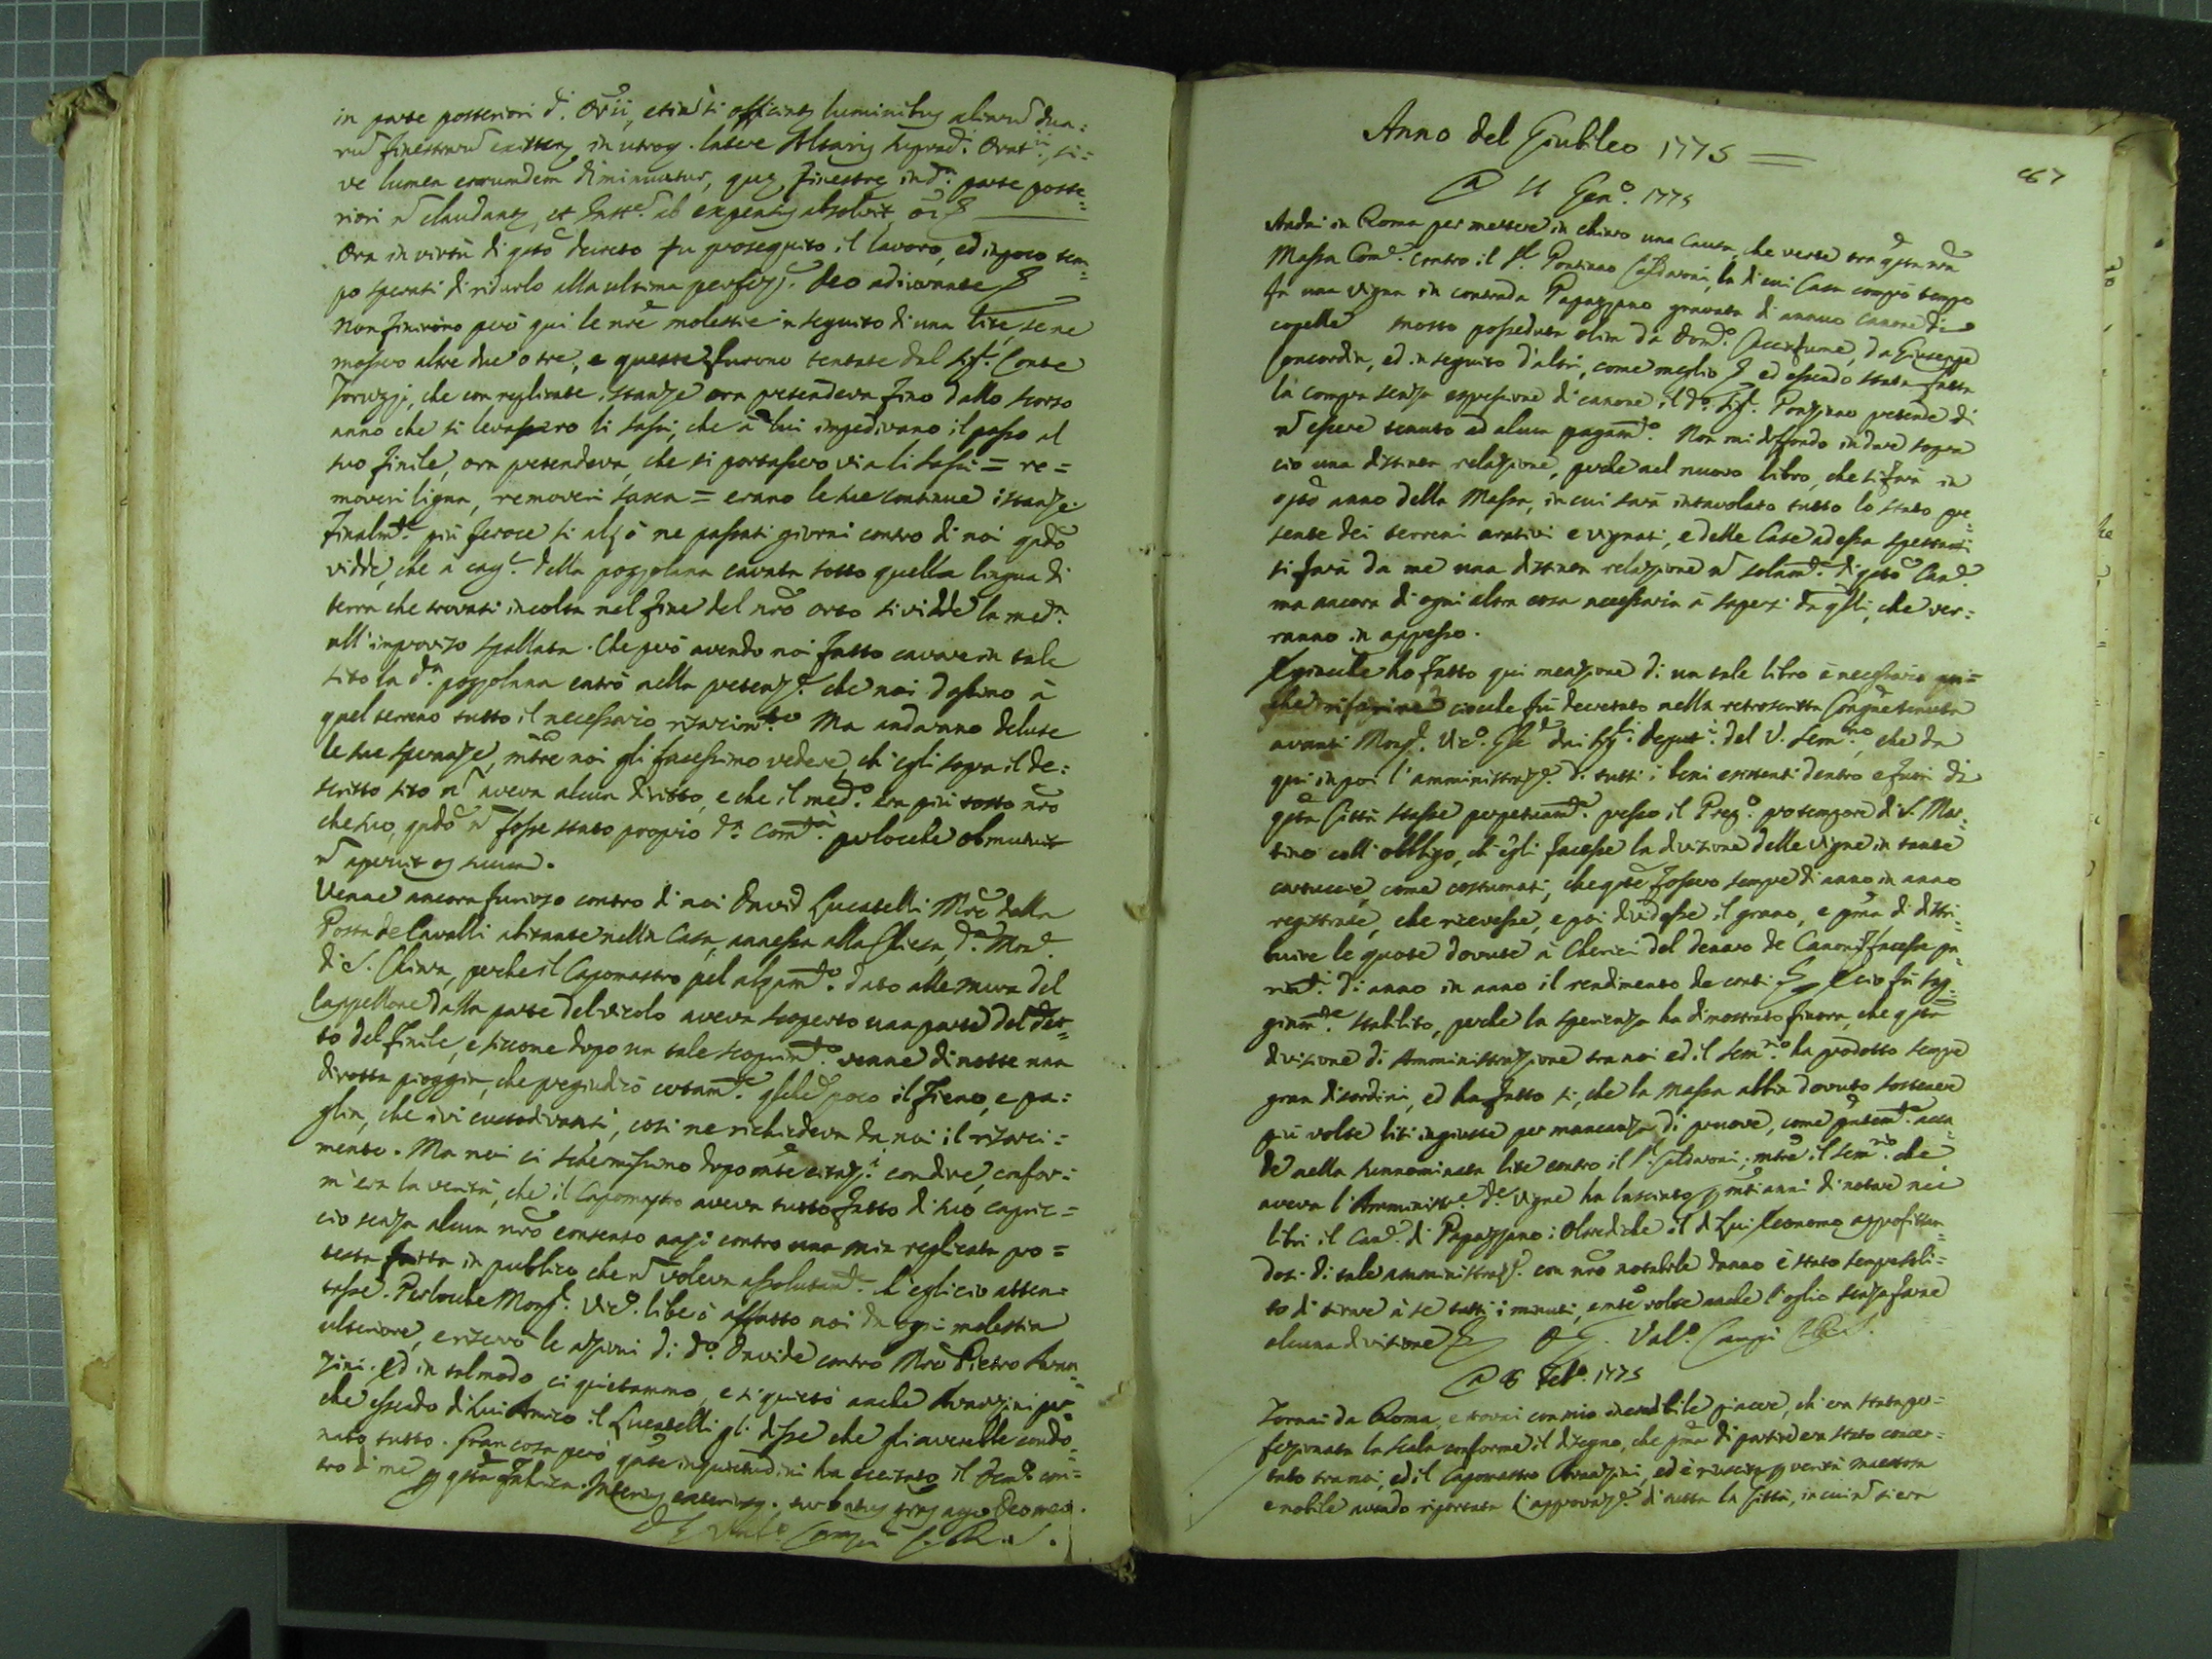 in parte posteriori d. Orii, etiã si officiat luminibus aliarũ dua=
rũ finestrarũ existen in utroq. latere Altaris suprad. Oratii, si=
ve lumen eorumdem diminuatur, que finestre in da parte poste=
riori ñ claudant, et ab expensis absolvit
Ora in virtù di qsto decreto fu proseguito il lavoro, ed in poco tem=
po sperasi di ridurlo alla ultima perfez.e Deo adiuvante
Non finirono però qui le nre molestie in seguito di una lite, se ne
mossero altre due o tre, e queste furono tentate dal Sig.r Conte
Toruzzj, che con replicate istanze ora pretendeva fino dallo scorso
anno che si levassero li sassi, che à lui impedivano il passo al
suo finile, ora pretendeva, che si portassero via li sassi = re=
moveri ligna, removeri saxa = erano le sue continue istanze.
Finalmte più feroce si alzò ne passati giorni contro di noi qndo
vidde, che à cag.e della pozzolana cavata sotto quella lingua di
terra che trovasi incolta nel fine del nro orto si vidde la med.a
all'improviso spallata. Che però avendo noi fatto cavare in tale
sito la d.a pozzolana entrò nella pretenz.e che noi dassimo à
quel terreno tutto il necessario risarcimto. Ma andarono deluse
le sue speranze, mtre noi gli facessimo vedere, ch'egli sopra il de=
scritto sito ñ aveva alcun diritto, e che il med.o era più tosto nro
che suo, qndo ñ fosse stato proprio d.a Comtà. perloche obmutuit
ñ aperuit os suum.
Venne ancora furioso contro di noi David Lucatelli Mro della
Posta de Cavalli abitante nella Casa annessa alla Chiesa, d.a Mon.e
di S. Chiara, perche il Capomastro pel alzamto. dato alle mura del
Cappellone dalla parte del vicolo aveva scoperto una parte del Tet=
to del finile, e siccome dopo un tale scoprimto. venne di notte una
dirotta pioggia, che pregiudicò certamte. qlche poco il fieno, e pa=
glia, che ivi custodivasi, così ne richiedeva da noi il risarci=
mento. Ma noi ci schermissimo dopo mte citaz.i con dire, confor=
m'era la verità, che il Capomastro aveva tutto fatto di suo capric=
cio senza alcun nro consenso anzi contro una mia replicata pro=
testa fatta in publico che ñ voleva assolutamte. ch'egli ciò atten=
tasse. Perloche Mons.r Vic.o liberò affatto noi da ogni molestia
ulteriore, e riservò le azioni di d.o Davide contro Mro Pietro Avan=
zini. Ed in tal modo ci quietammo, e si quietò anche Avanzini per=
che essendo di lui Amico il Lucatelli gli disse che gli averebbe condo=
nato tutto. Gran cosa però, qnte inquietudini ha eccitato il Dem.o con=
tro di me p qsta Fabrica. Interius exteriusq. turbatus gras ago Deo meo.
Val.o Campi

67
Anno del Giubileo 1775 =
A 11 Gen.o 1775
Andai in Roma per mettere in chiaro una Causa, che verte tra qsta nra
Massa Com.e contro il S.r Ponziano Caldaroni, la di cui Casa comprò tempo
fa una vigna in contrada Papazzano gravata di annuo canone di
copelle mosto posseduta olim da Dom.o da Giuseppe
Concordia, ed in seguito d'altri, come meglio ed essendo stata fatta
la compra senza espressione di canone il d.o Sig.r Ponziano pretende di
ñ essere tenuto ad alcun pagamto. Non mi diffondo in dare sopra
ciò una distinta relazione, perche nel nuovo libro, che si farà in
qsto anno della Massa, in cui sarà intavolato tutto lo stato pre=
sente dei terreni arativi e vignati, e delle Case ad essa spettanti
si farà da me una distinta relazione ñ solamte. di qsto Can.e
ma ancora di ogni altra cosa necessaria à sapersi da qlli, che ver=
ranno in appresso.
E giacche ho fatto qui menzione di un tale libro è necessario qui=
che riferire ciocche fù decretato nella retroscritta Congne tenuta
avanti Mons.r Vic.o Gle dai Sig.ri deput.i del V. Sem.rio che da
qui in poi l'amministraz.e di tutti i beni esistenti dentro e fuori di
qsta Città stasse perpetuamte. presso il Prep.o pro tempore di S. Mar=
tino coll'obbligo, ch'egli facesse la divizione delle vigne in tante
cartuccie, come costumasi, che qste fossero sempre di anno in anno
registrate, che ricevesse, e poi dividesse il grano, e pma di distri=
buire le quote dovute à Cherici del denaro de Canoni facesse pa=
rimte. di anno in anno il rendimento de conti E ciò fù sag=
giamte stabilito, perche la sperienza ha dimostrato finora, che qsta
divisione di Amministrazione tra noi ed il Sem.rio ha prodotto sempre
gran disordini, ed ha fatto sì, che la Massa abbia dovuto sostenere
più volte liti ingiuste per mancanza di pruove, come puntualmte. acca=
de nella sunnominata lite contro il S.r Caldaroni; mtre il Sem.rio che
aveva l'Amministr.e d.e vigne ha lasciato p mti anni di notare nei
libri il Can.e di Papazzano: Oltredichè il di Lui Economo approfittan=
dosi di tale amministraz.e con nro notabile danno è stato sempre soli=
to di tirare à se tutti i minuti, e mte volte anche l'oglio senza farne
alcuna divisione Val.o Campi
A 8 Feb.o 1775
Tornai da Roma, e trovai con mio incredibile piacere, ch'era stata per=
fezionata la scala conforme il disegno, che pma di partire era stato concer=
tato tra noi, ed il Capomastro Avanzini, ed è riuscita p verità maestosa
e nobile avendo riportata l'approvaz.e di tutta la Città, in cui ñ si era